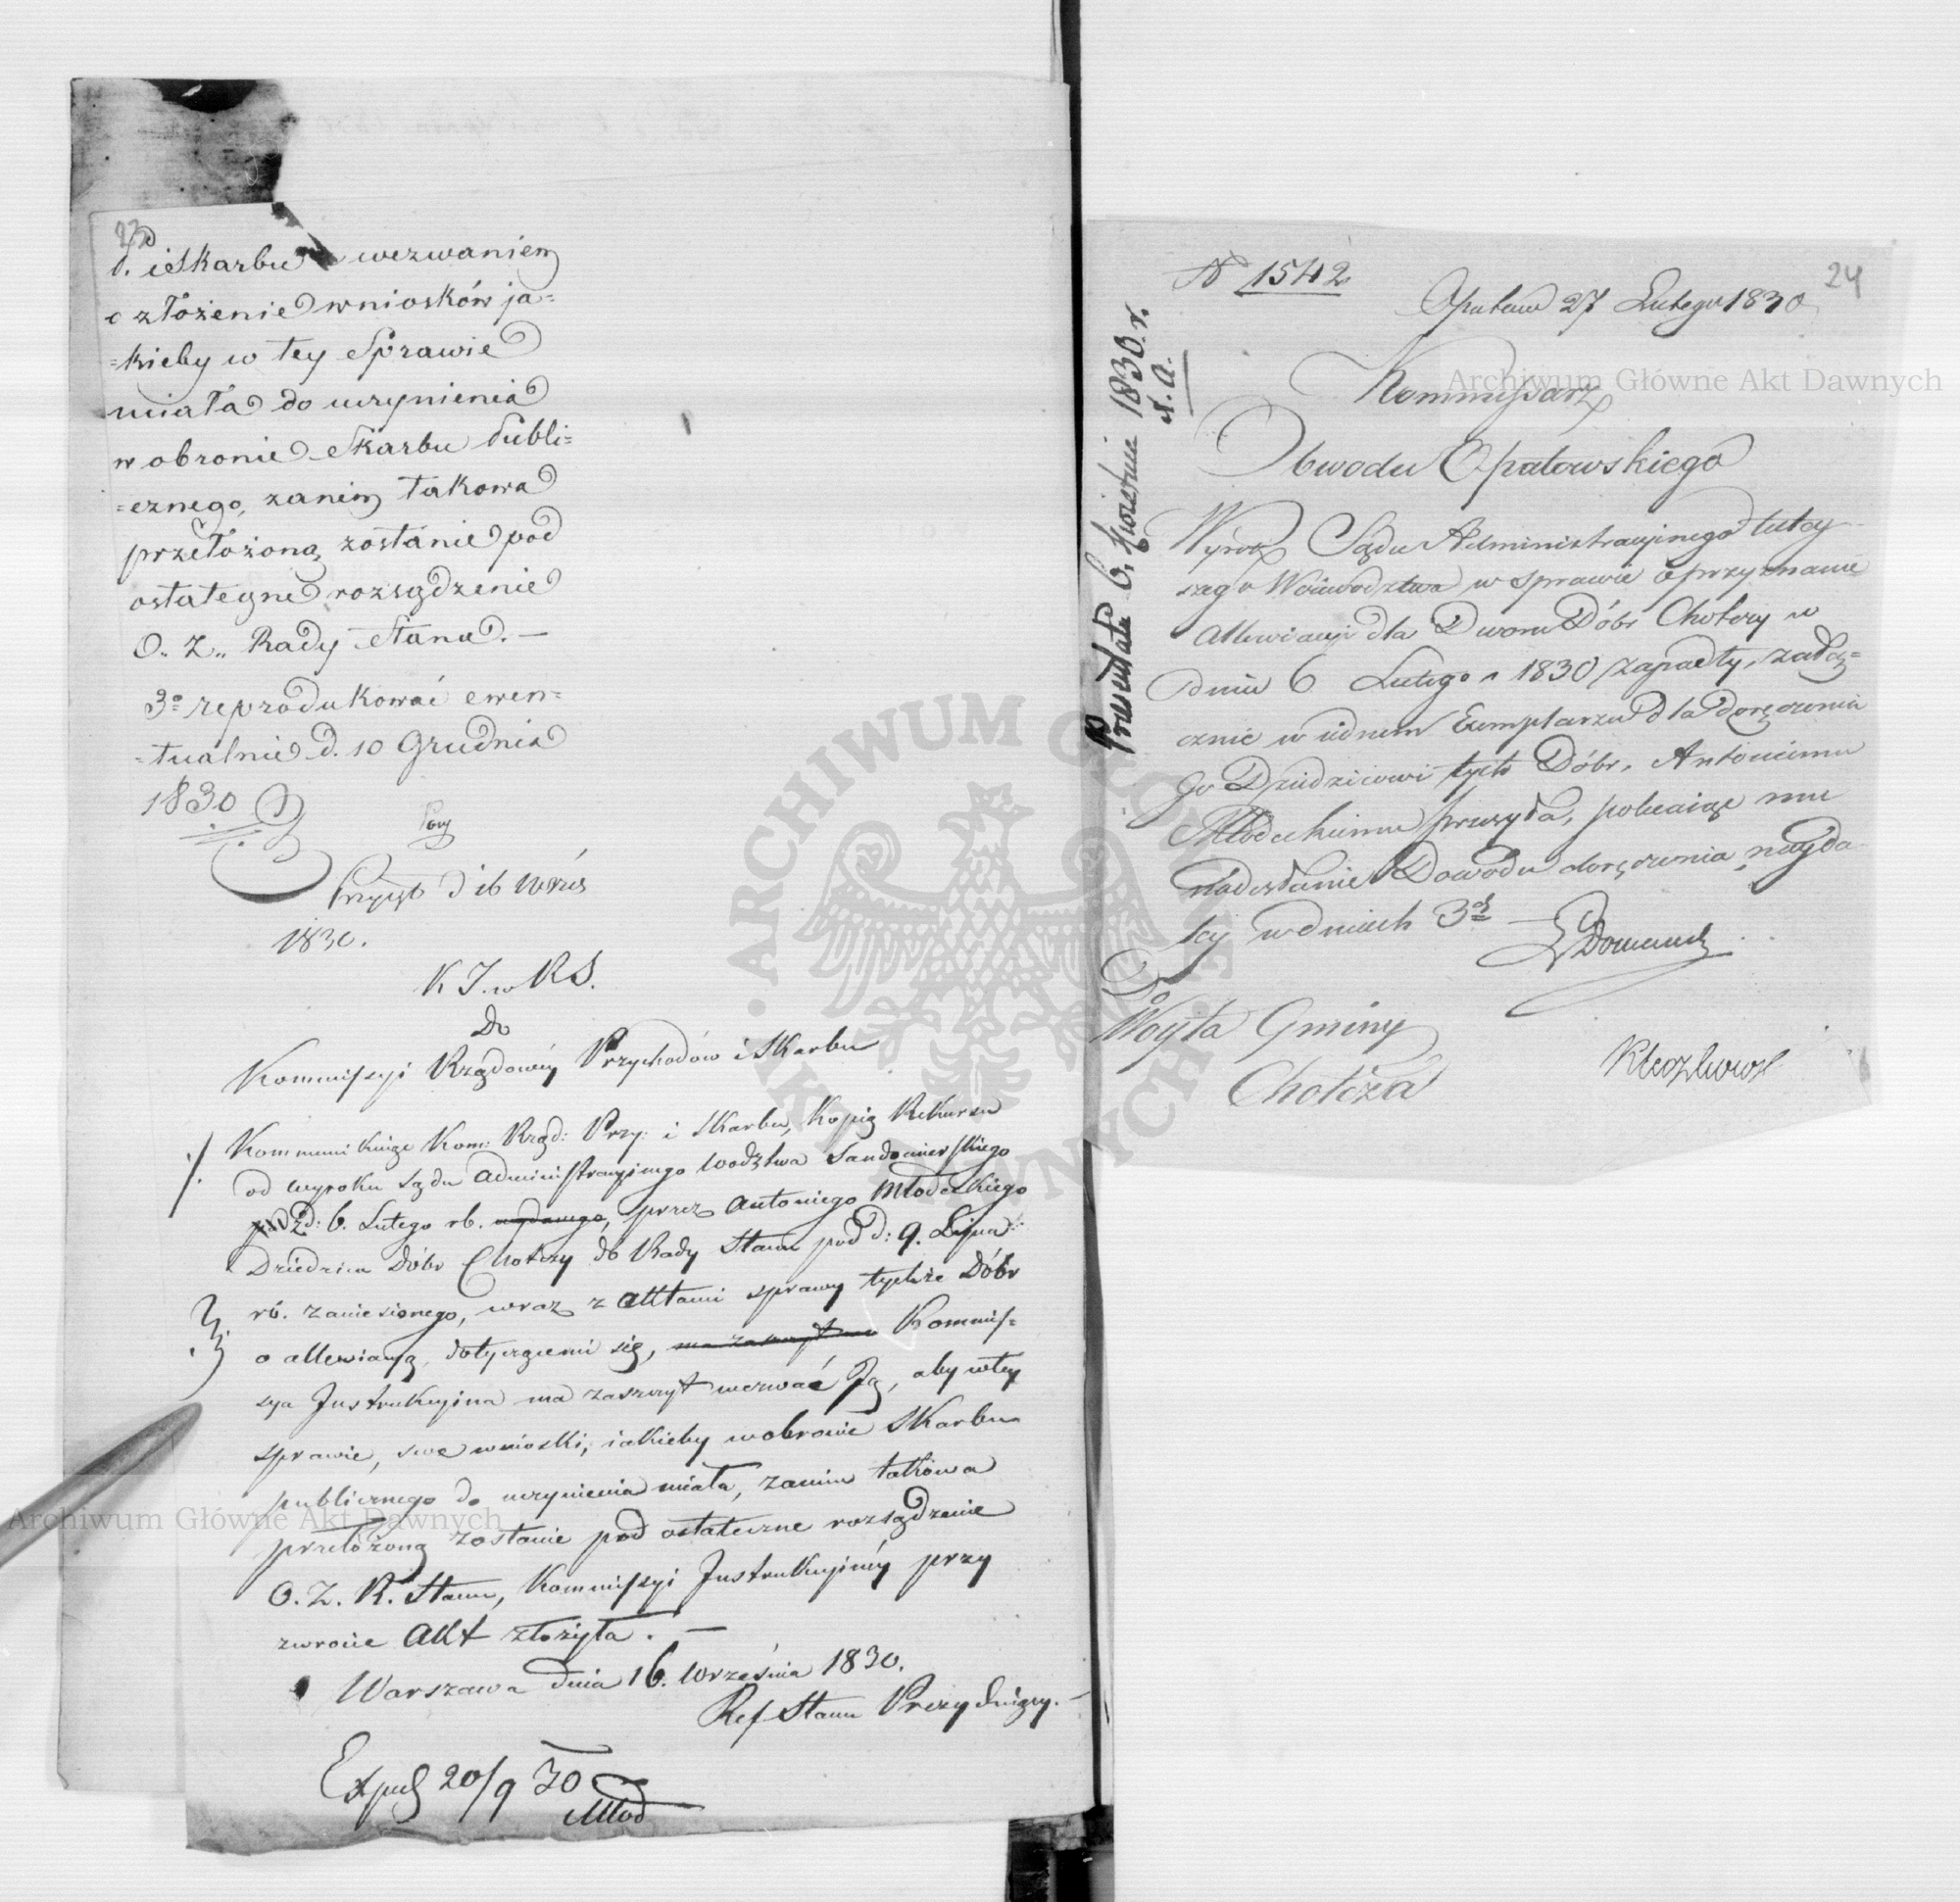 23
P. i Skarbu z wezwaniem
o złożenie wniosków ja=
=kieby w tey Sprawie
miała do uczynienia
w obronie Skarbu Publi=
=cznego, zanim takowa
przełożoną zostanie pod
ostateczne rozsądzenie
O. Z. Rady Stanu. —
3o reprodukować ewen=
=tualnie d. 10 Grudnia
1830
Przyst d 16 Wrześ
1830.
K J. w RS.
Do
Kommissyi Rządowéy Przychodów i Skarbu
Kommunikuiąc Kom: Rząd: Przy: i Skarbu, Kopią Rekursu
od wyroku Sądu Administracyinego Wodztwa Sandomierskiego
z d: 6. Lutego rb. wydanego, przez Antoniego Młodeckiego
Dziedzica Dóbr Chotczy do Rady Stanu pod d: 9. Lipca
rb. zaniesionego, wraz z Aktami sprawy tychże Dóbr
o allewiacyą, dotyczącemi się, ma zaszczyt Kommis=
sya Instrukcyina ma zaszczyt wezwać Ją, aby w tey
sprawie, swe wnioski, iakieby w obronie Skarbu
publicznego do uczynienia miała, zanim takowa
przełożoną zostanie pod ostateczne rozsądzenie
O. Z. R. Stanu, Kommissyi Instrukcyinéy przy
zwrocie Akt złożyła. —
Warszawa dnia 16. Września 1830.
Ref Stanu Prezyduiący.
Exped 20/9 30
Młod
N 1542
24
Opatow 27 Lutego 1830
Kommissarz
Obwodu Opatowskiego
Wyrok Sądu Administracyinego tutey
szego Woiewodztwa w sprawie o przyznanie
allewiacyi dla Dworu Dóbr Chotczy w
dniu 6 Lutego r 1830 zapadły, załą=
cznie w iednem Exemplarzu dla doręczenia
go Dziedzicowi tych Dóbr, Antoniemu
Młodeckiemu przesyła, polecaiąc mu
nadesłanie Dowodu doręczenia, nayda
ley w dniach 3ch
Do
Woyta Gminy
Chotcza
Praesentata 6. Kwietnia 1830. r.
Archiwum Główne Akt Dawnych
Archiwum Główne Akt Dawnych
ARCHIWUM GŁÓWNE AKT DAWNYCH